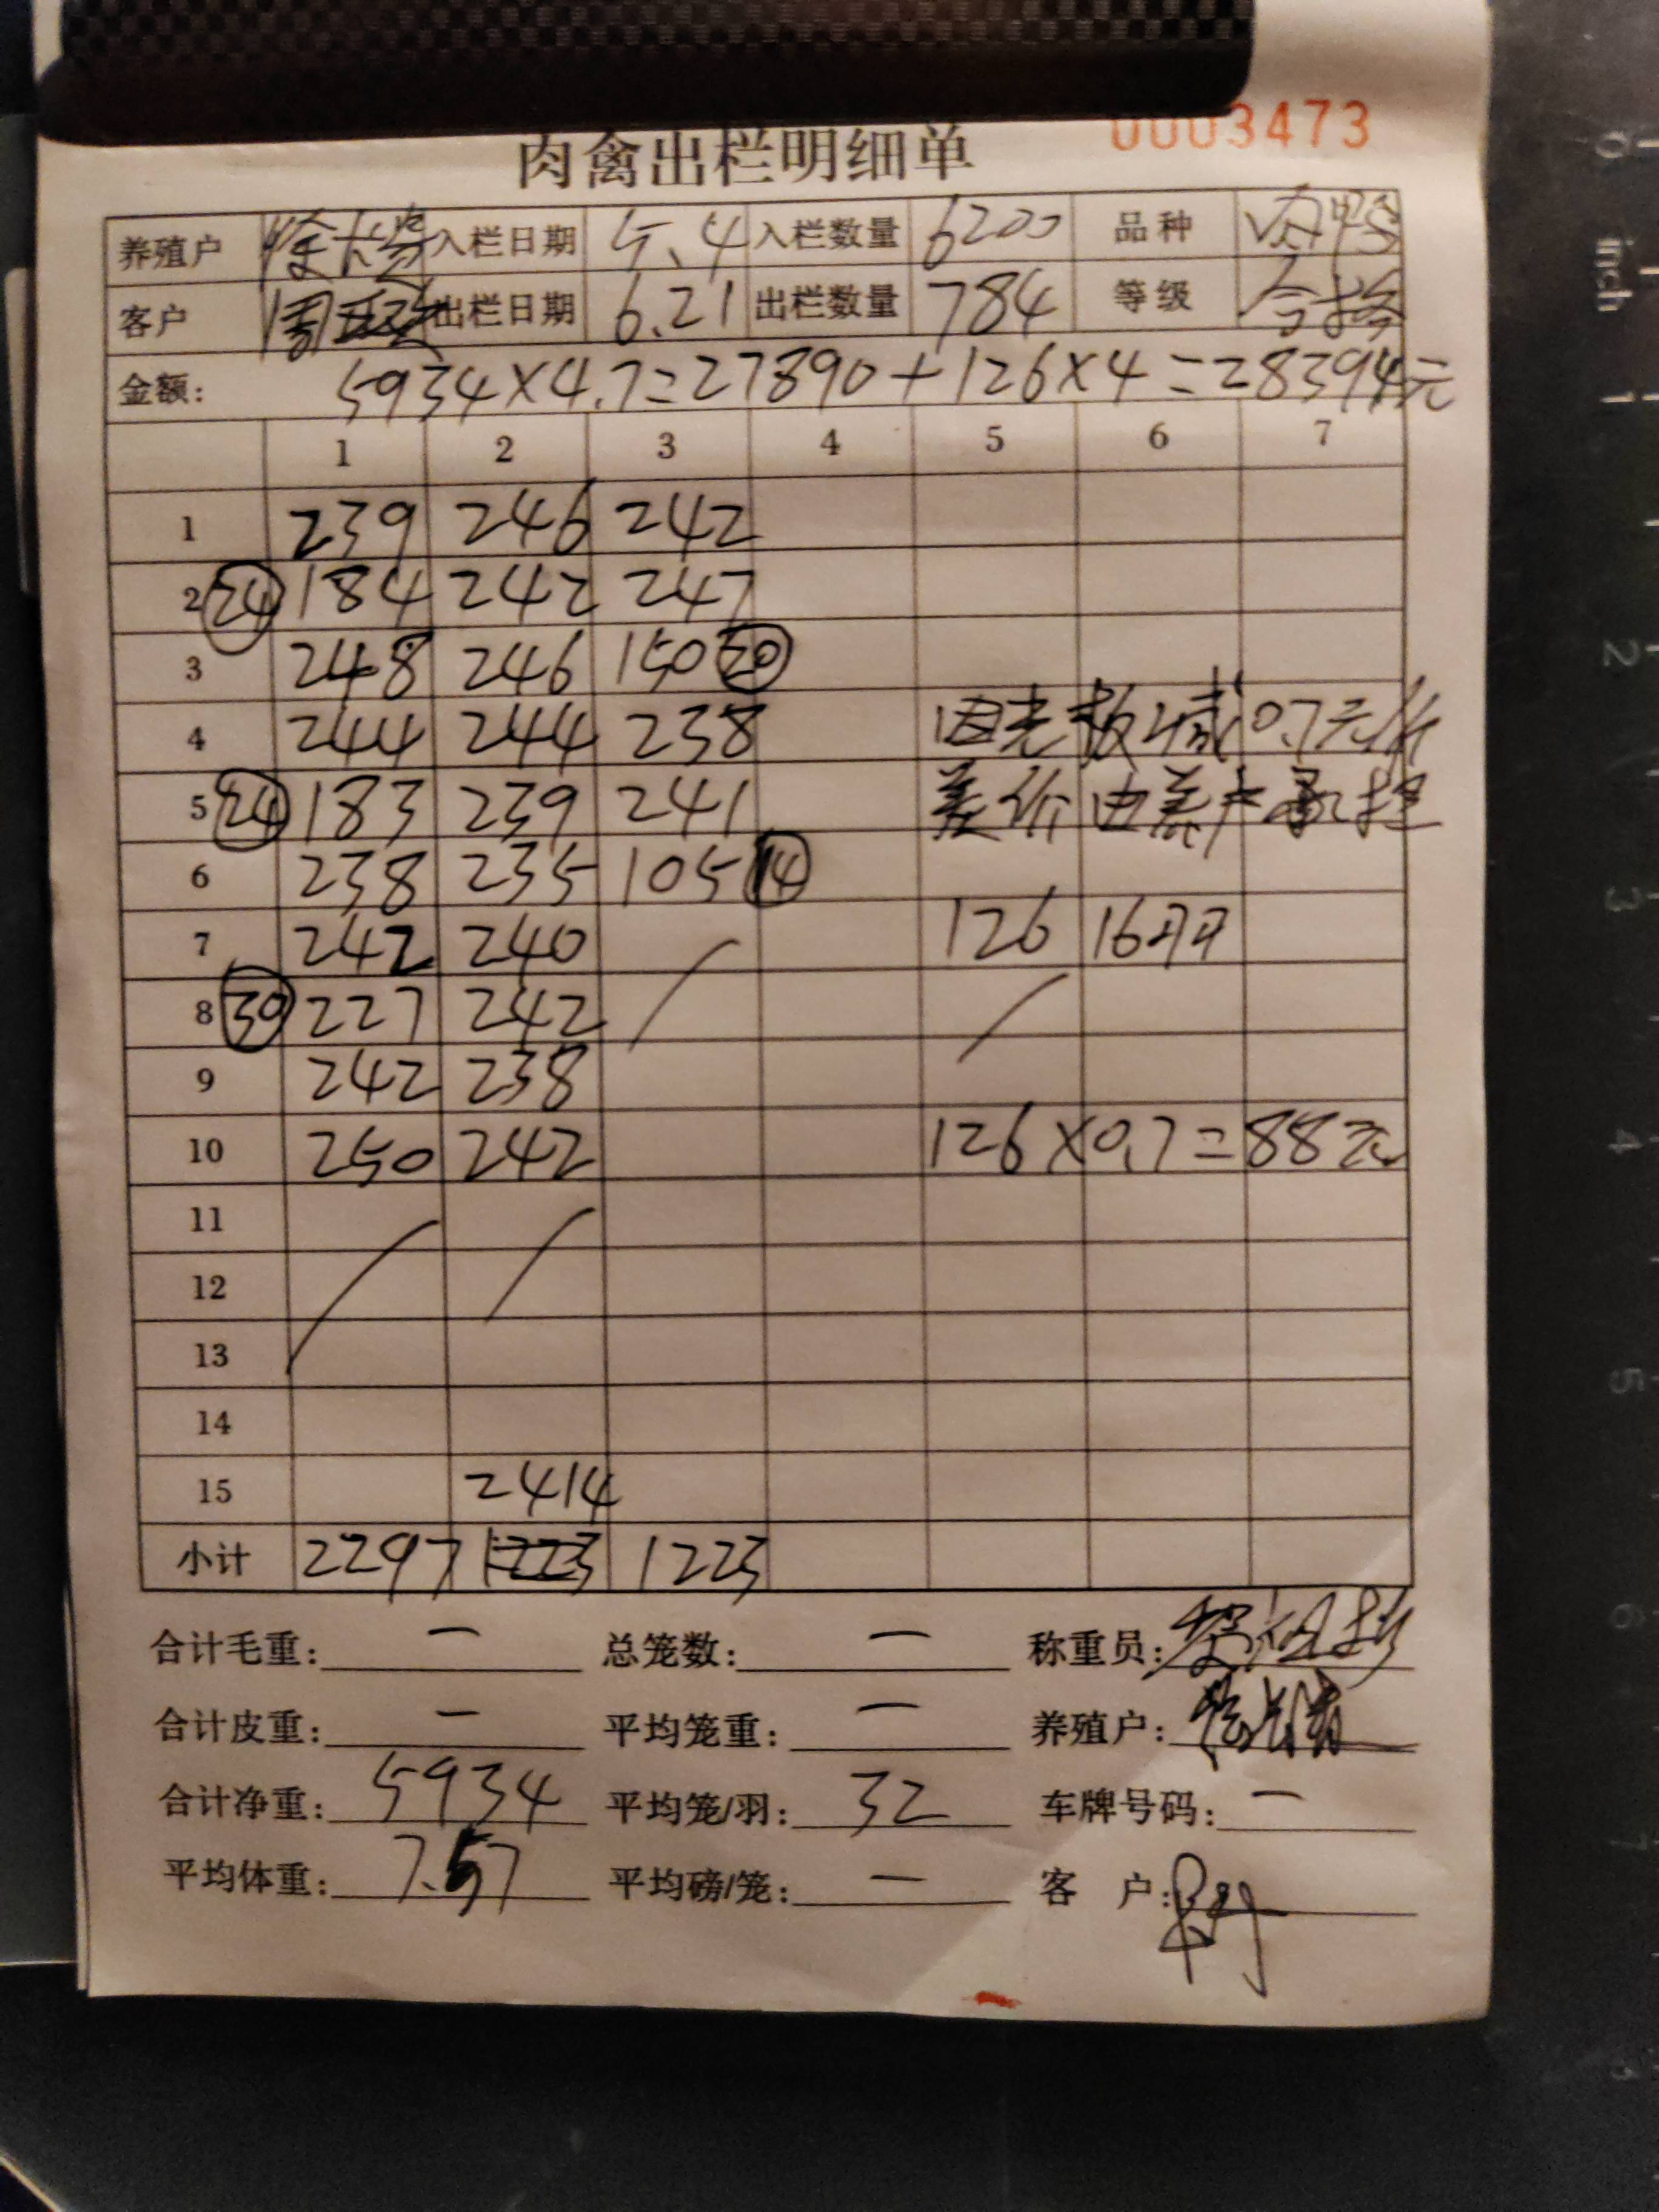 0003473
肉禽出栏明细单
养殖户 入栏日期 5.4 入栏数量 6200 品种 肉鸭
客户 出栏日期 6.21 出栏数量 784 等级 合格
金额: 5934×4.7=27890+126×4=28394元
1 2 3 4 5 6 7
1 239 246 242
2 24 184 242 247
3 248 246 150 20
4 244 244 238 减0.7元/斤
5 24 183 239 241 差价由养户承担
6 238 235 105 14
7 242 240 126 16羽
8 30 227 242
9 242 238
10 250 242 126×0.7=88元
11
12
13
14
15 2414
小计 2297 1223 1223
合计毛重: — 总笼数: — 称重员:
合计皮重: — 平均笼重: — 养殖户:
合计净重: 5934 平均笼/羽: 32 车牌号码: —
平均体重: 7.57 平均磅/笼: — 客 户:
0 inch 1 2 3 4 5 6 7 8